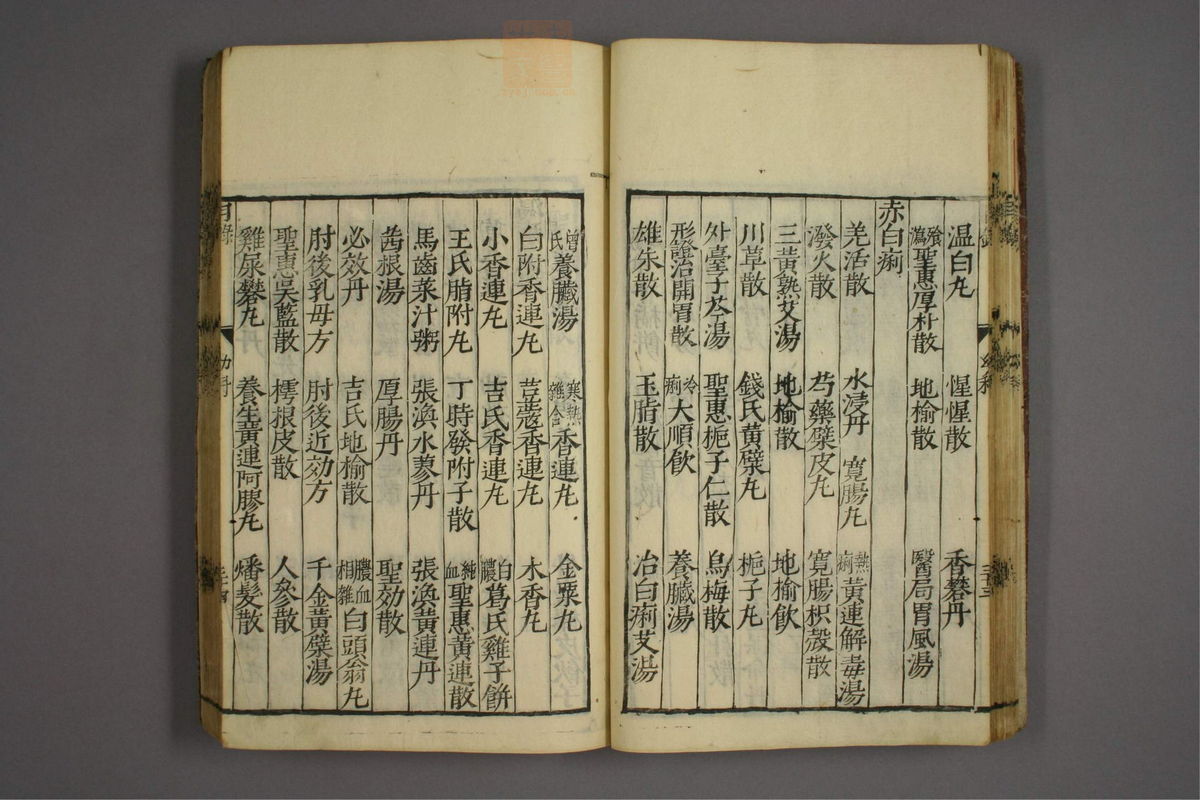 温白丸 惺惺散 香礬丹
飱瀉聖惠厚朴散 地榆散 醫局胃風湯
赤白痢
羌活散 水浸丹 寬腸丸 熱痢黃連解毒湯
潑火散 芍藥蘗皮丸 寬腸枳殼散
三黃熟艾湯 地榆散 地榆飲
川草散 錢氏黃蘗丸 梔子丸
外臺子芩湯 聖惠梔子仁散 烏梅散
形證治開胃散 冷痢大順飲 養臟湯
雄朱散 玉脂散 冶白痢艾湯
曾氏養臟湯 寒熱雜合香連丸 金粟丸
白附香連丸 荳蔻香連丸 木香丸
小香連丸 吉氏香連丸 白膿葛氏雞子餅
王氏脂附丸 丁時發附子散 純血聖惠黃連散
馬齒菜汁粥 張渙水蓼丹 張渙黃連丹
茜根湯 厚腸丹 聖効散
必效丹 吉氏地榆散 膿血相雜白頭翁丸
肘後乳母方 肘後近効方 千金黃蘗湯
聖惠吳藍散 樗根皮散 人參散
雞屎礬丸 養生黃連阿膠丸 燔髮散
目錄